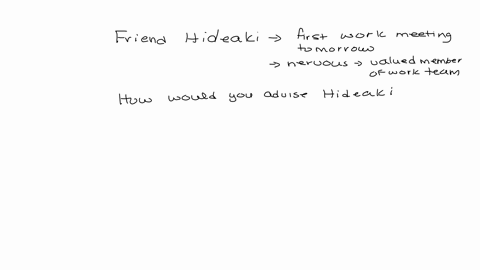 Friend Hideaki → first work meeting
tomorrow
→ nervous → valued member
of work team
How would you advise Hideaki